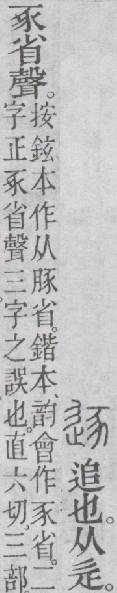 逐 追也。从辵。
豕省聲。
按鉉本作从豚省。鍇本、韵會作豕省。二
字正豕省聲三字之誤也。直六切。三部。